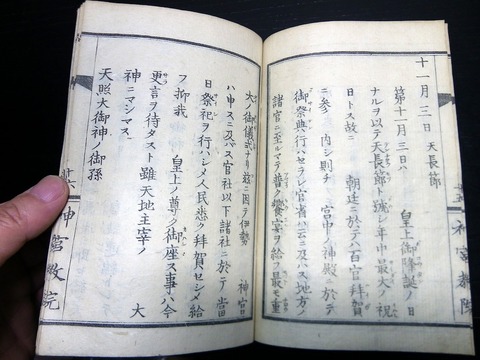 十一月三日 天長節
第十一月三日ハ 皇上御降誕ノ日
ナルヲ以テ天長節ト號シ年中最大ノ祝
日トス故ニ 朝廷ニ於テハ百官拜賀
ニ參 内シ則チ 宮中ノ神殿ニ於テ
御祭典行ハセラレ官省ハ云ニ及ハス地方ノ
諸官ニ至ルマテ普ク饗宴ヲ給フ最モ重
大ノ御儀式ナリ茲ニ因テ伊勢 神宮
ハ申スニ及ハス官社以下諸社ニ於テ當
日祭祀ヲ行ハシメ人民悉ク拜賀セシメ給
フ抑我 皇上ノ尊ク御座ス事ハ今
更言ヲ待タスト雖天地主宰ノ 大
神ニマシマス
天照大御神ノ御孫
神宮教院